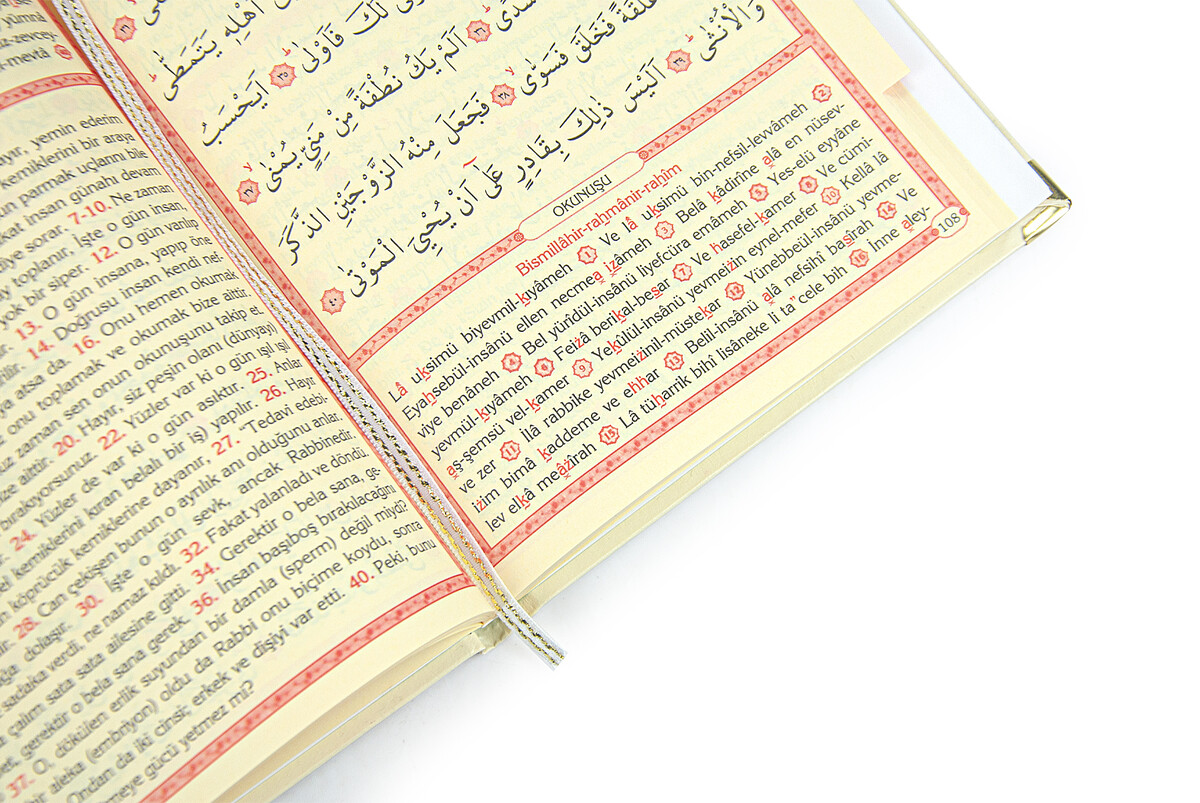 yümnâ
z-zevcey-
k-mevtâ
ayır, yemin ederim
kemiklerini bir araya
ün parmak uçlarını bile
akat insan günahı devam
diye sorar. 7-10. Ne zaman
toplanır, İşte o gün insan,
yok bir siper. 12. O gün varılıp
13. O gün insana, yapıp öne
14. Doğrusu insan kendi nef-
ya atsa da. 16. Onu hemen okumak
onu toplamak ve okumak bize aittir.
zaman sen onun okunuşunu takip et.
aittir. 20. Hayır, siz peşin olanı (dünyayı)
bırakıyorsunuz. 22. Yüzler var ki o gün ışıl ışıl
24. Yüzler de var ki o gün asıktır. 25. Anlar
kemiklerini kıran belalı bir iş) yapılır. 26. Hayır
köprücük kemiklerine dayanır, 27. "Tedavi edebi-
28. Can çekişen bunun o ayrılık anı olduğunu anlar.
dolaşır. 30. İşte o gün sevk, ancak Rabbinedir.
sadaka verdi, ne namaz kıldı. 32. Fakat yalanladı ve döndü.
çalım sata sata ailesine gitti. 34. Gerektir o bela sana, ge-
gerektir o bela sana gerek. 36. İnsan başıboş bırakılacağını
37. O, dökülen erlik suyundan bir damla (sperm) değil miydi?
bir aleka (embriyon) oldu da Rabbi onu biçime koydu, sonra
Ondan da iki cinsi; erkek ve dişiyi var etti. 40. Peki, bunu
meye gücü yetmez mi?
اَهْلِهٖ يَتَمَطّٰى
لَكَ فَاَوْلٰى ﴿٣٥﴾ اَيَحْسَبُ
سُدًى ﴿٣٦﴾ اَلَمْ يَكُ نُطْفَةً مِنْ مَنِيٍّ يُمْنٰى ﴿٣٧﴾
عَلَقَةً فَخَلَقَ فَسَوّٰى ﴿٣٨﴾ فَجَعَلَ مِنْهُ الزَّوْجَيْنِ الذَّكَرَ
وَالْاُنْثٰى ﴿٣٩﴾ اَلَيْسَ ذٰلِكَ بِقَادِرٍ عَلٰٓى اَنْ يُحْيِيَ الْمَوْتٰى ﴿٤٠﴾
OKUNUŞU
Bismillâhir-rahmânir-rahîm
Lâ uksimü biyevmil-kıyâmeh 1 Ve lâ uksimü bin-nefsil-levvâmeh 2
Eyahsebül-insânü ellen necmea izâmeh 3 Belâ kâdirîne alâ en nüsev-
viye benâneh 4 Bel yürîdül-insânü liyefcüra emâmeh 5 Yes-elü eyyâne
yevmül-kıyâmeh 6 Feizâ berikal-besar 7 Ve hasefel-kamer 8 Ve cümi-
aş-şemsü vel-kamer 9 Yekülül-insânü yevmeizin eynel-mefer 10 Kellâ lâ
ve zer 11 İlâ rabbike yevmeizinil-müstekar 12 Yünebbeül-insânü yevme-
izim bimâ kaddeme ve ehhar 13 Belil-insânü alâ nefsihî basîrah 14 Ve
lev elkâ meâzîrah 15 Lâ tüharrik bihî lisâneke li ta" cele bih 16 İnne aley-
108